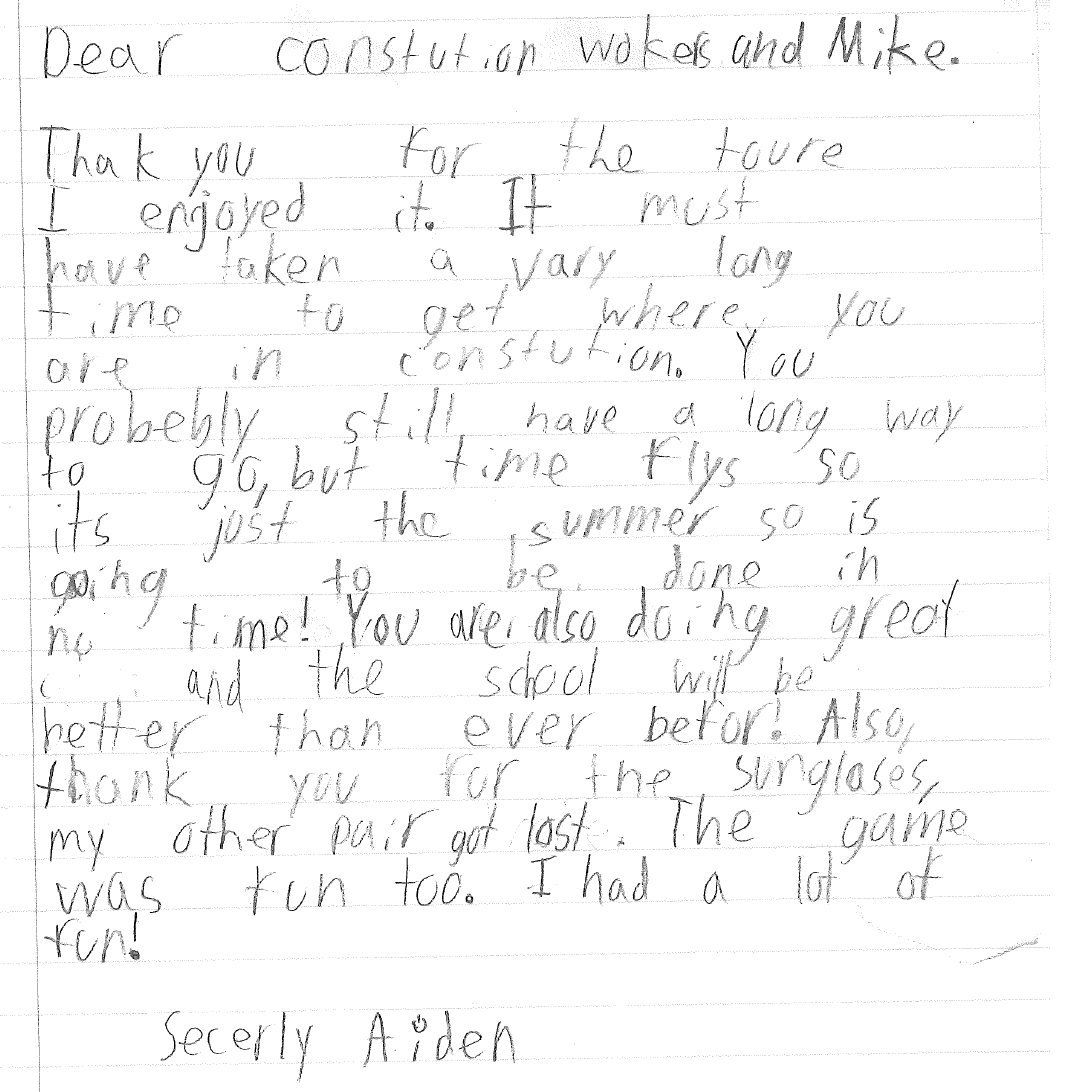 Dear constution wokers and Mike.
Thak you for the toure
I engoyed it. It must
have taken a vary long
time to get where you
are in constution. You
probebly still have a long way
to go, but time flys so
its just the summer so is
going to be done in
no time! You are also doing great
and the school will be
better than ever befor! Also,
thank you for the sunglases,
my other pair got lost. The game
was fun too. I had a lot of
fun!
Secerly Aiden